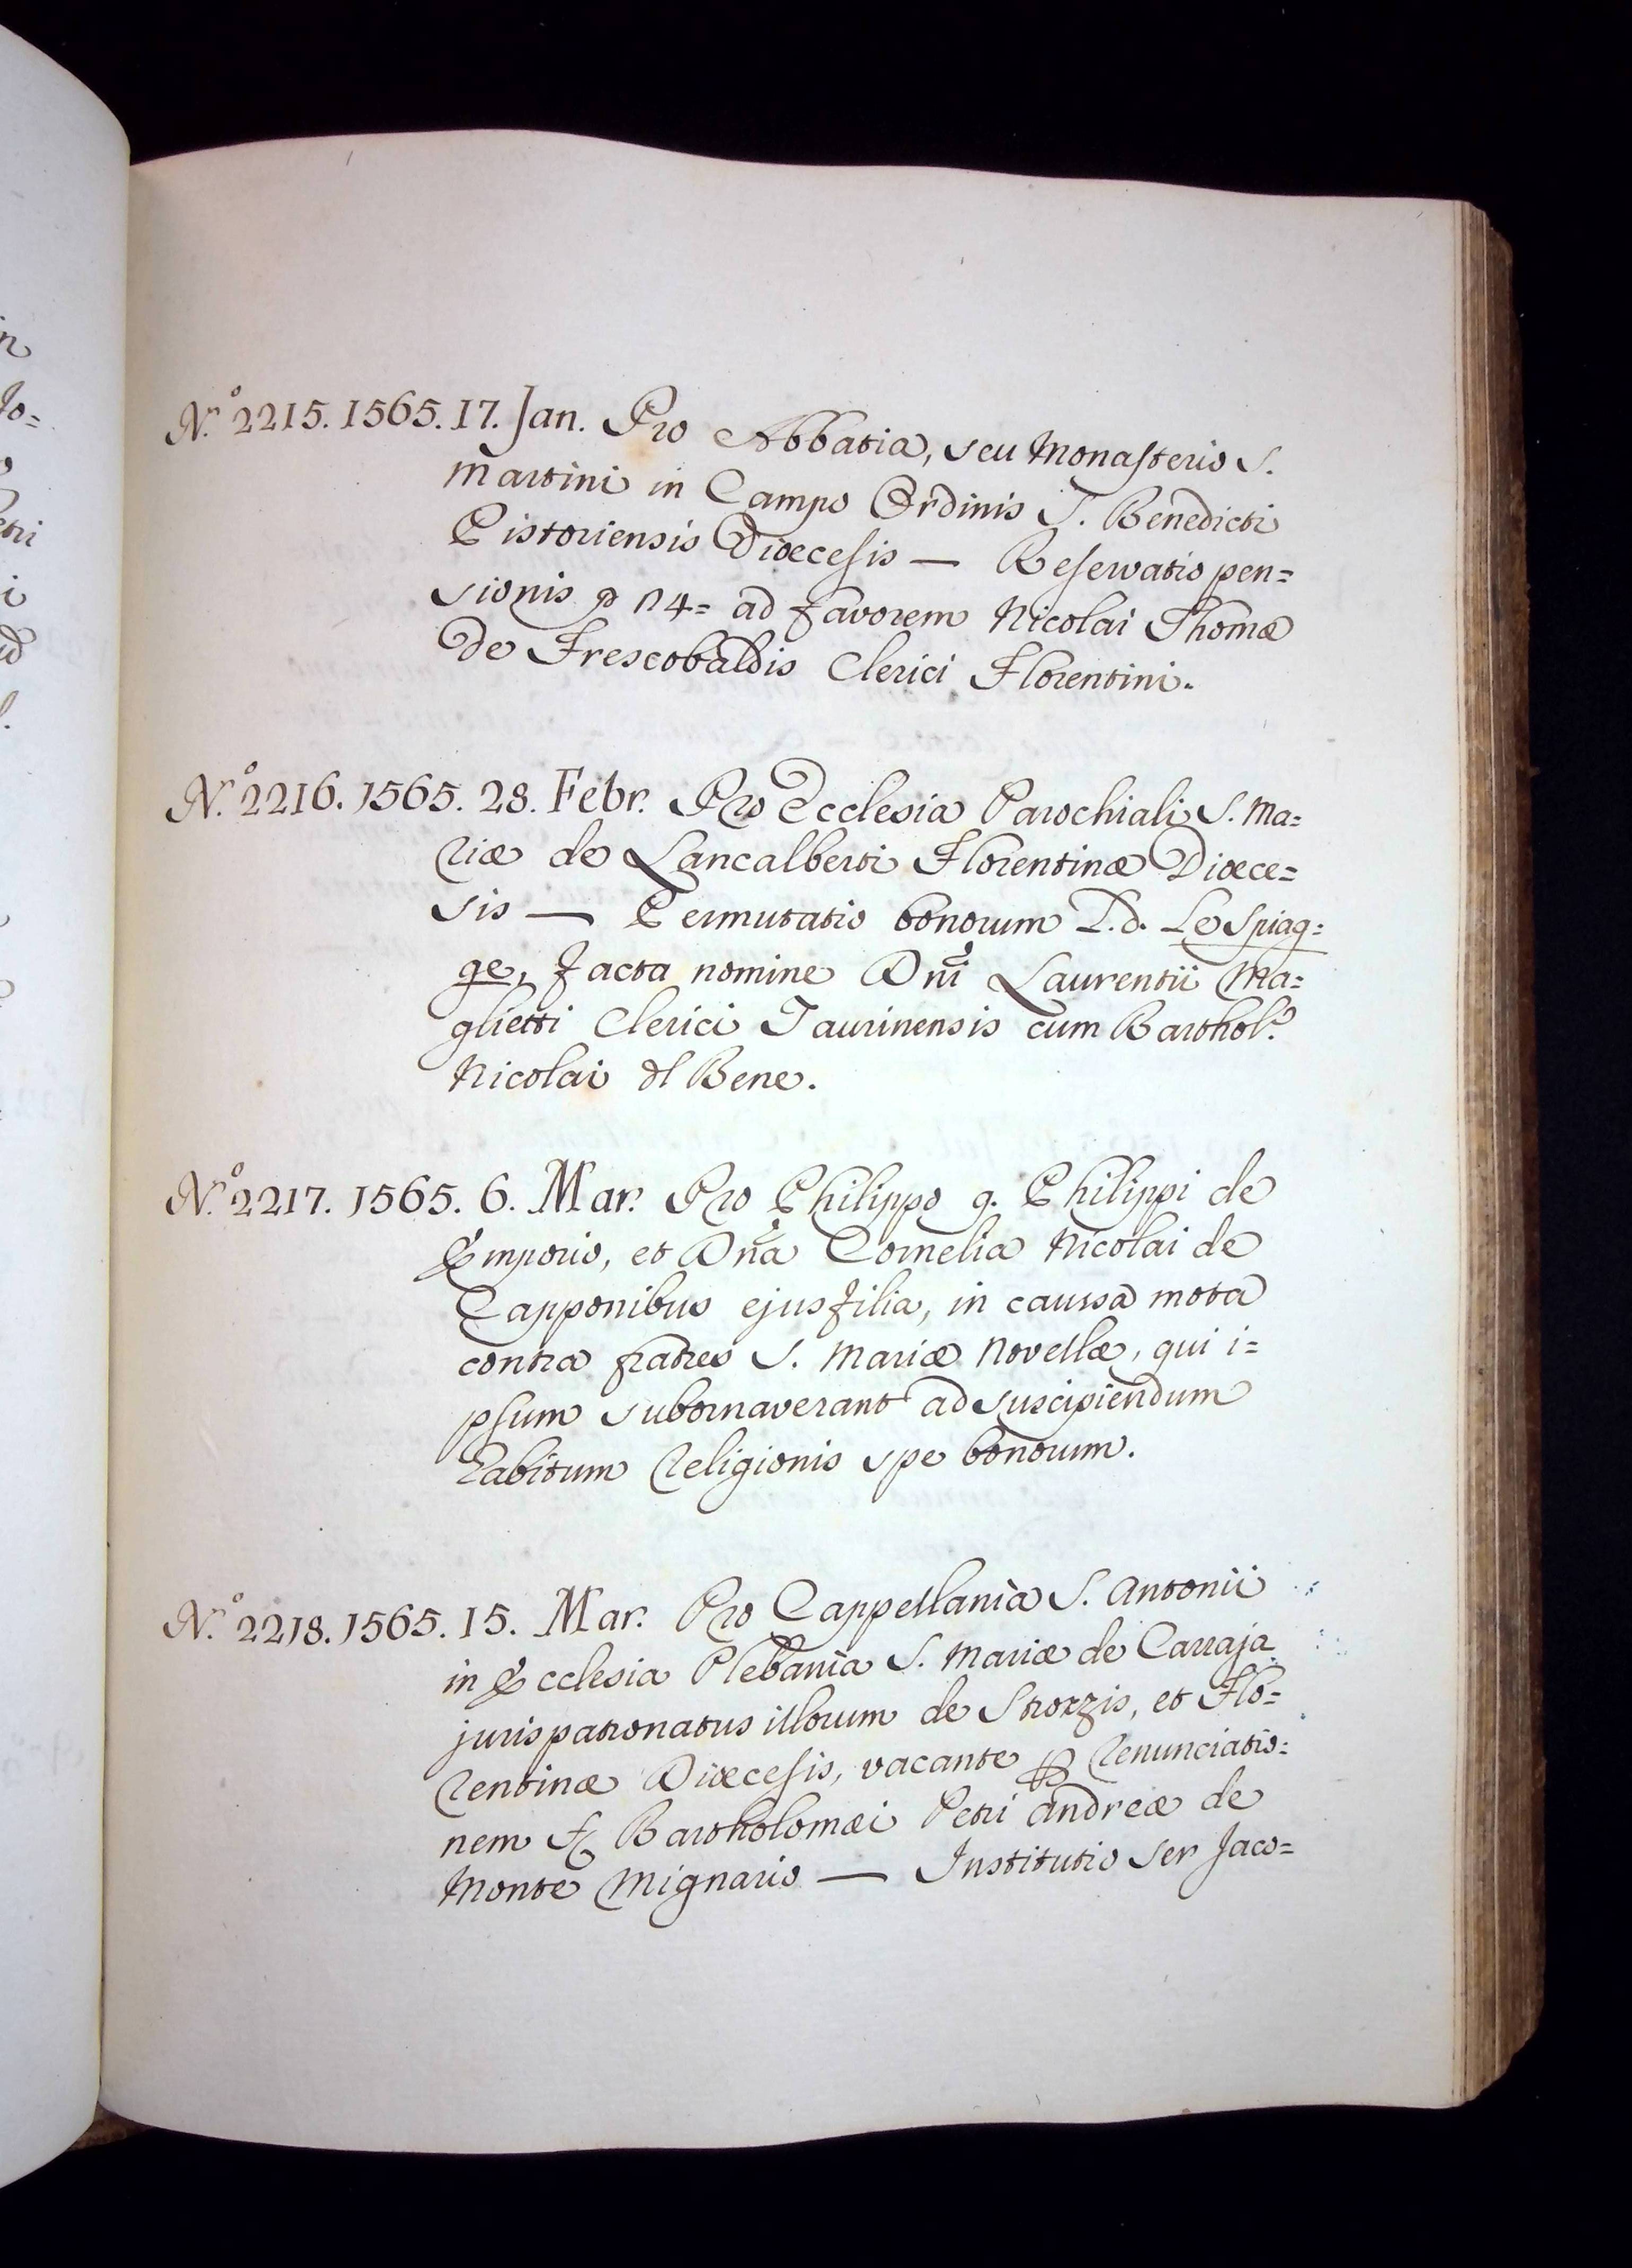 N.º 2215. 1565. 17. Jan. Pro Abbatia, seu Monasterio S.
Martini in Campo Ordinis S. Benedicti
Pistoriensis Diœcesis — Reservatio pen=
sionis ꝓ 4= ad favorem Nicolai Thomæ
de Frescobaldis Clerici Florentini.
N.º 2216. 1565. 28. Febr. Pro Ecclesia Parochiali S. Ma=
riæ de Lancalberti Florentinæ Diœce=
sis — Permutatio bonorum L.d. Le Spiag=
ge, facta nomine Dñi Laurentii Ma=
glietti Clerici Taurinensis cum Barthol.º
Nicolai dl Bene.
N.º 2217. 1565. 6. Mar. Pro Philippo q. Philippi de
Emporio, et Dña Cornelia Nicolai de
Capponibus ejus filia, in caussa mota
contra fratres S. Mariæ Novellæ, qui i=
psum subornaverant ad suscipiendum
habitum Religionis spe bonorum.
N.º 2218. 1565. 15. Mar. Pro Cappellania S. Antonii
in Ecclesia Plebania S. Mariæ de Carraja
juris patronatus illorum de Strozzis, et Flo=
rentinæ Diœcesis, vacante ꝑ renunciatio=
nem Bartholomæi Petri Andreæ de
Monte Mignario — Institutio Ser Jaco=
in
Jo=